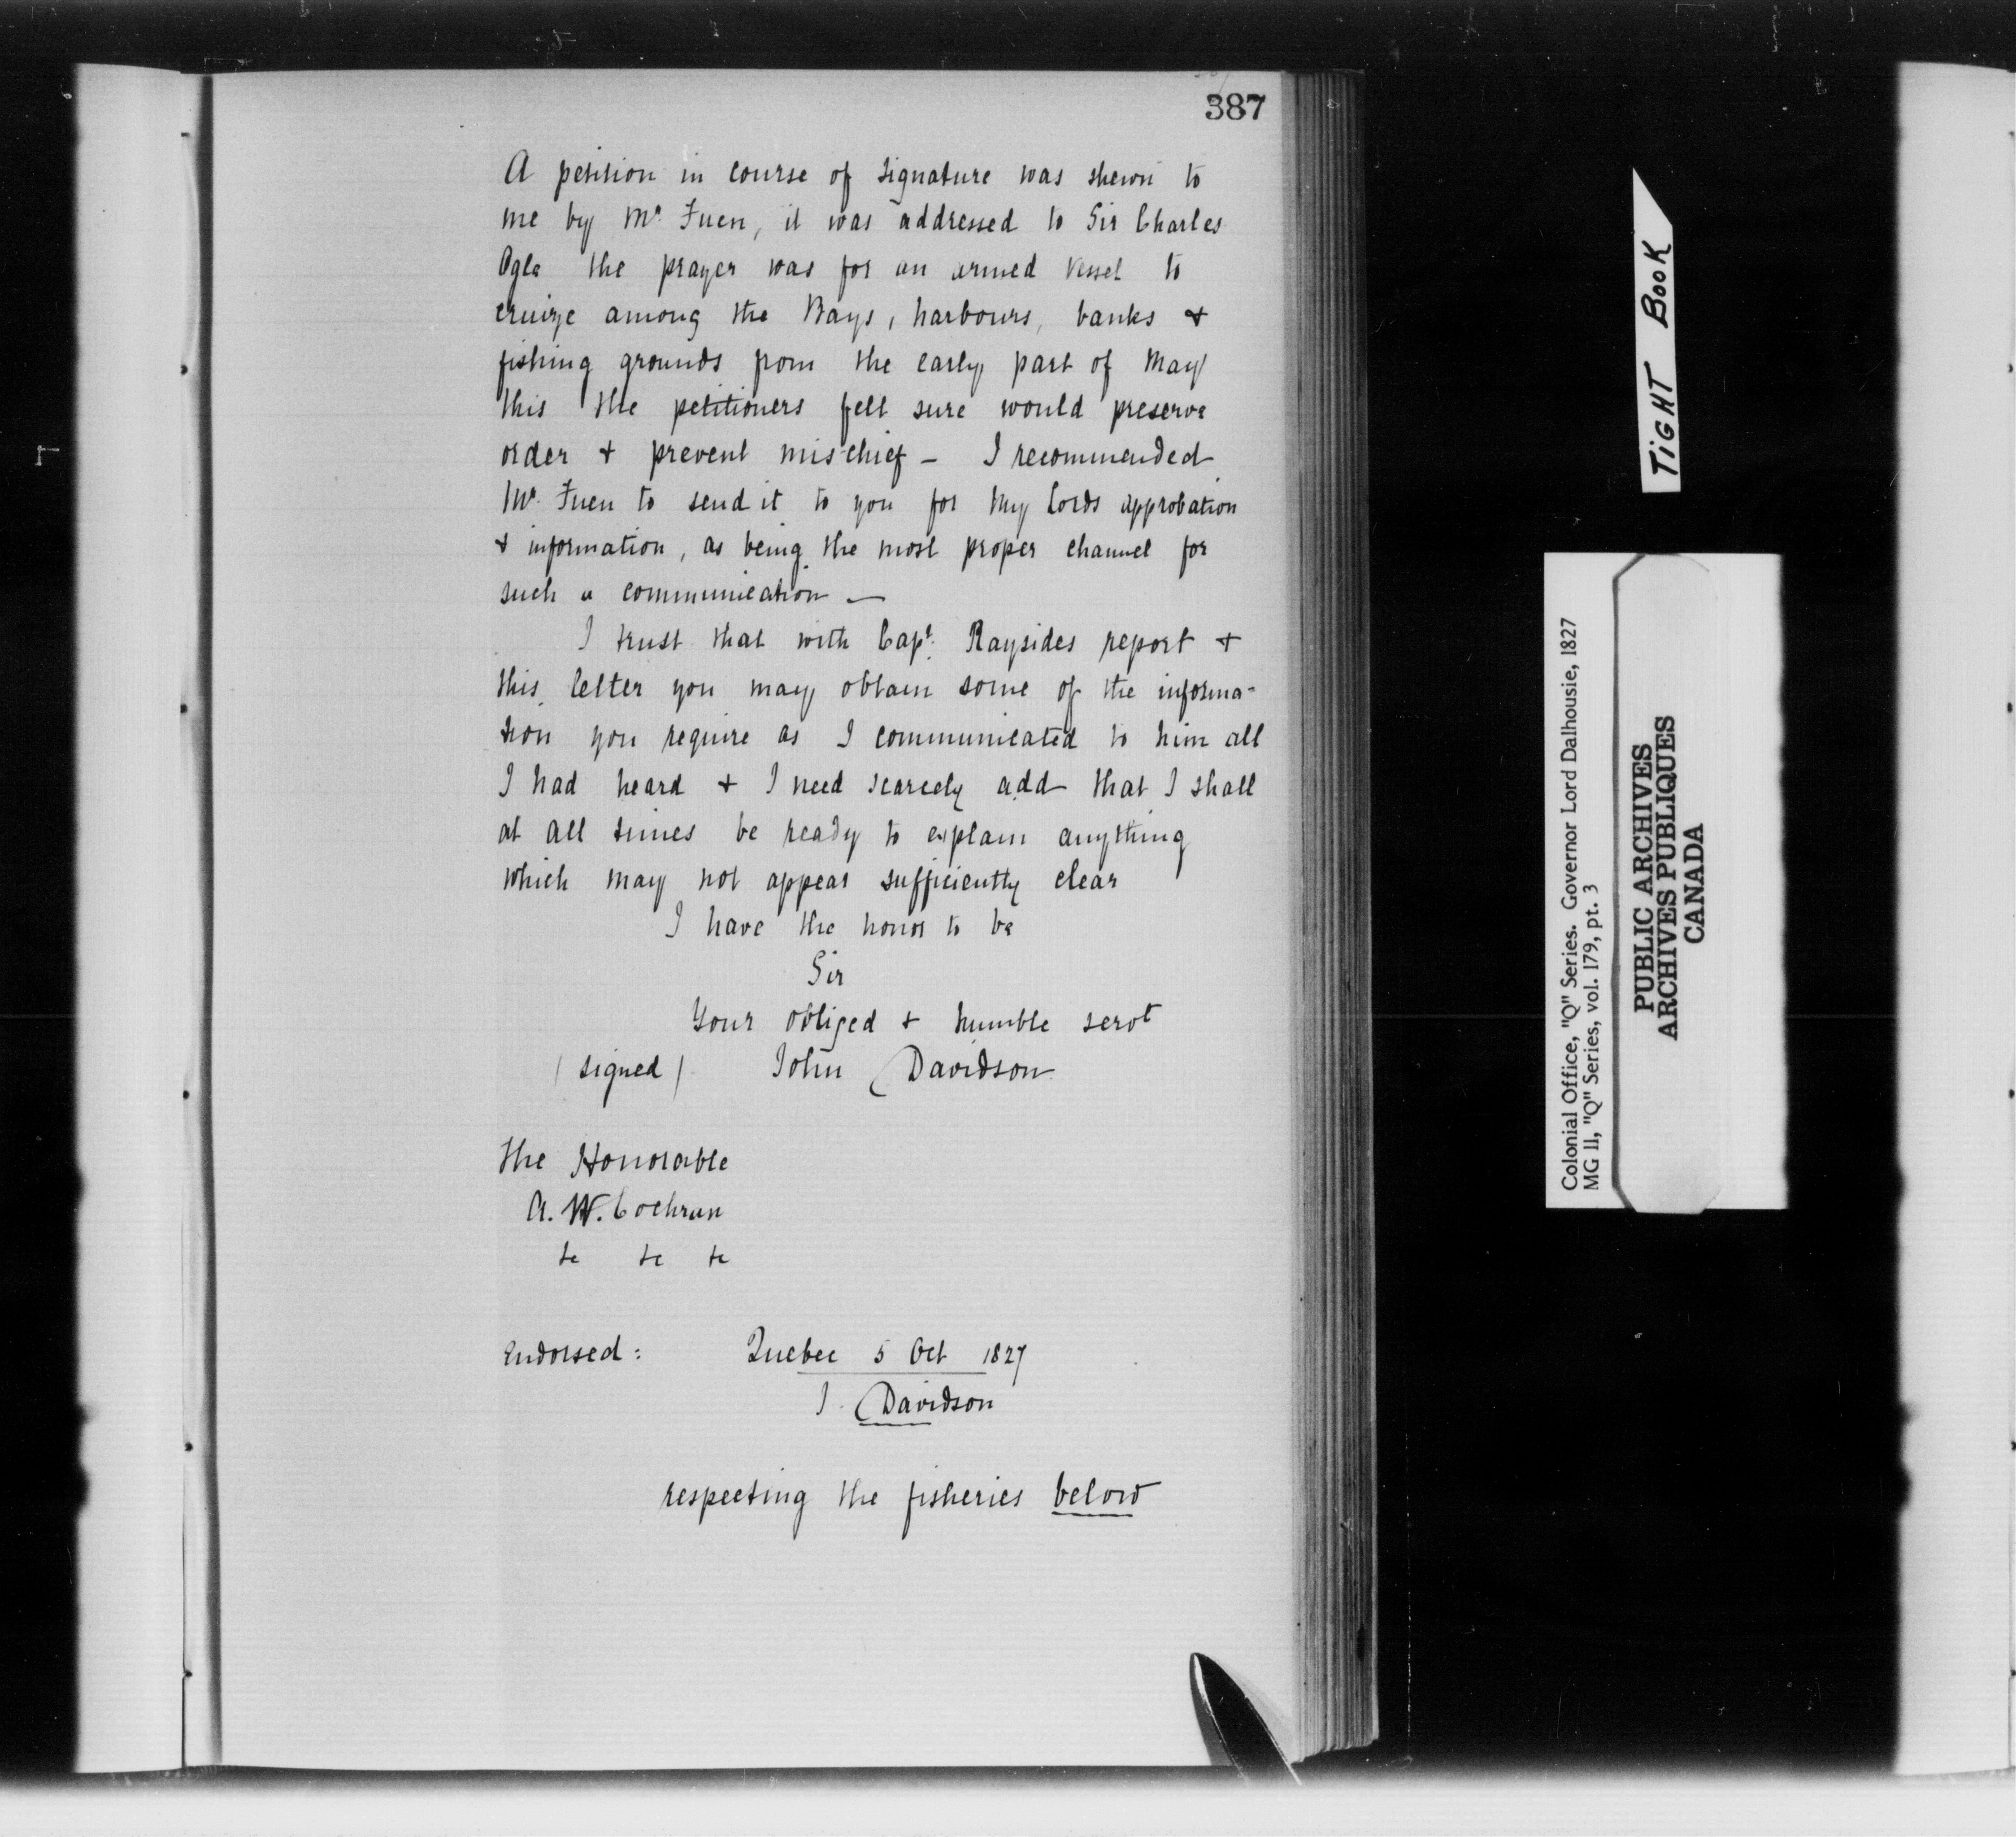 387
A petition in course of signature was shewn to
me by Mr. Fuen, it was addressed to Sir Charles
Ogle the prayer was for an armed vessel to
cruize among the Bays, harbours, banks &
fishing grounds from the early part of May
this the petitioners felt sure would preserve
order & prevent mischief - I recommended
Mr. Fuen to send it to you for my Lords approbation
& information, as being the most proper channel for
such a communication -
I trust that with Capt. Raysides report &
this letter you may obtain some of the informa-
tion you require as I communicated to him all
I had heard & I need scarcely add that I shall
at all times be ready to explain anything
which may not appear sufficiently clear
I have the honor to be
Sir
Your obliged & humble servt
(signed) John Davidson
The Honorable
A. W. Cochran
&c &c &c
Endorsed: Quebec 5 Oct 1827
J. Davidson
respecting the fisheries below
TIGHT BOOK
Colonial Office, "Q" Series. Governor Lord Dalhousie, 1827
MG 11, "Q" Series, vol. 179, pt. 3
PUBLIC ARCHIVES
ARCHIVES PUBLIQUES
CANADA